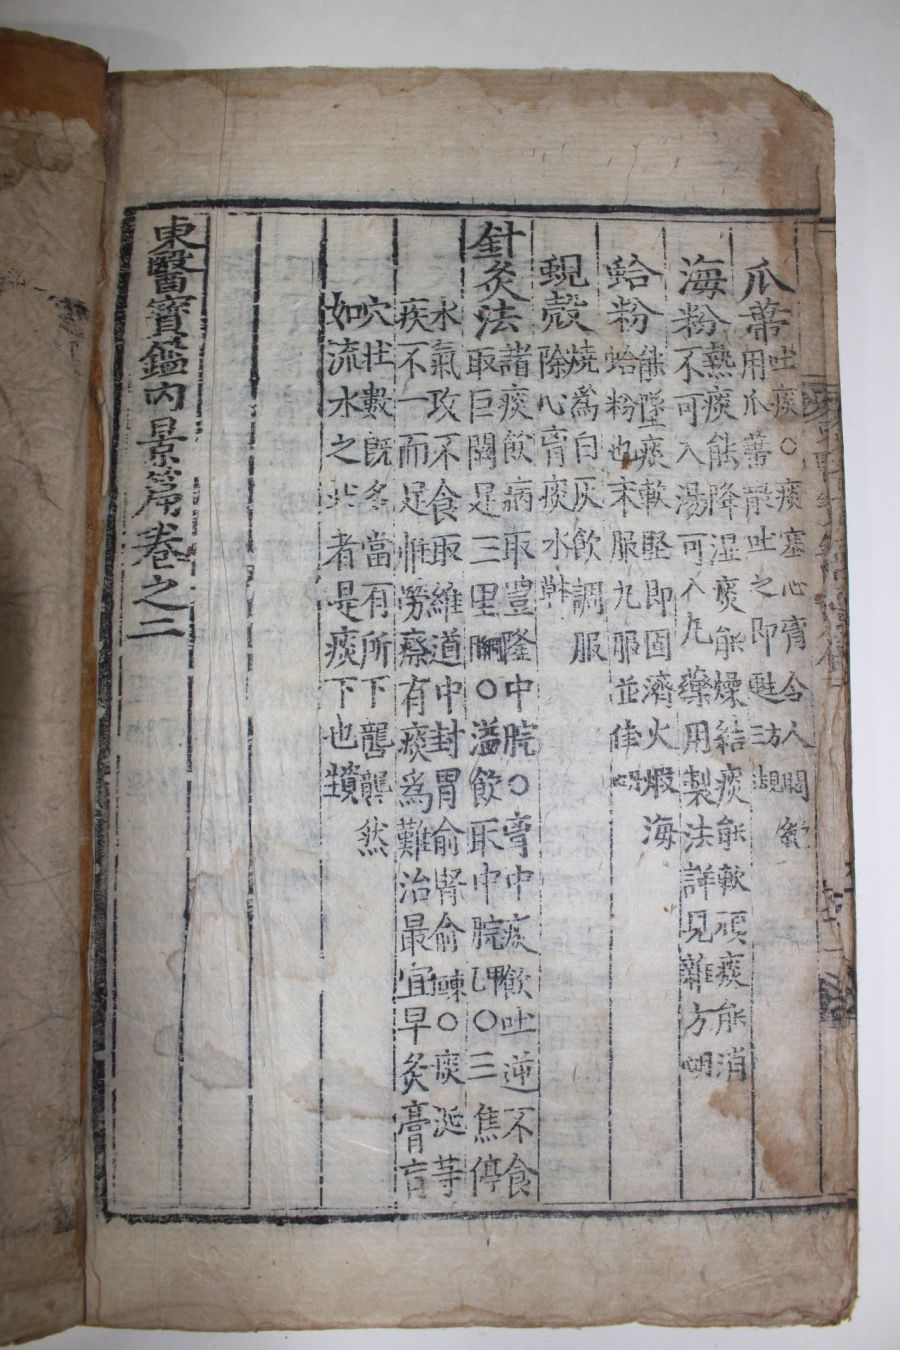 瓜蔕
吐痰○痰塞心膏令人悶
用瓜蔕散吐之即甦
海粉
熱痰能降湿痰能燥結痰能軟頑痰能消
不可入湯可入丸藥用製法詳見雜方
蛤粉
能墜痰軟堅即固濟火煆海
蛤粉也末服丸服並佳
蜆殼
燒爲白灰飲調服
除心膏痰水
針灸法
諸痰飮病取豊隆中脘○膏中痰飮吐逆不食
取巨闕足三里綱○溢飮取中脘甲○三焦停
水氣攻不食取維道中封胃俞腎俞東○痰涎等
疾不一而足惟勞瘵有痰爲難治最宜早灸膏肓
穴壯數旣多當有所下礲礲然
如流水之狀者是痰下也
東醫寶鑑內景篇卷之二